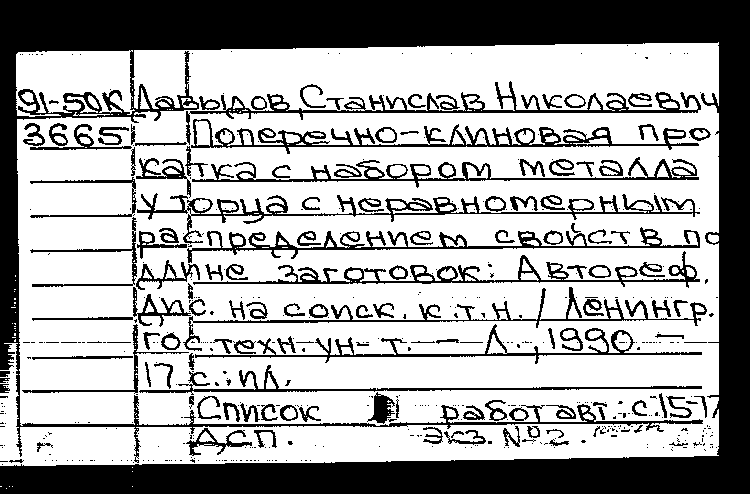 91-50К Давыдов, Станислав Николаевич
3665 Поперечно-клиновая про-
катка с набором металла
у торца с неравномерным
распределением свойств по
длине заготовок: Автореф.
Дис. на соиск. к.т.н. / Ленингр.
гос. техн. ун-т. — Л., 1990. —
17 с.: ил.
Список работ авт.: с. 15-17
Дсп. Экз. № 2.